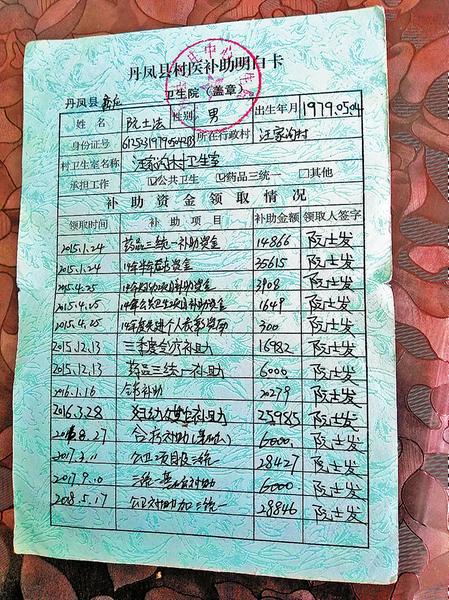 丹凤县村医补助明白卡
丹凤县 卫生院（盖章）
姓名 阮士法 性别 男 出生年月 1979.05.04
身份证号 所在行政村 汪家沟村
村卫生室名称 汪家沟村卫生室
承担工作 ☑公共卫生 ☑药品三统一 □其他
补助资金领取情况
领取时间 补助项目 补助金额 领取人签字
2015.1.24 药品三统一补助资金 14866 阮士发
2015.1.24 14年半年 资金 35615 阮士发
2015.4.25 14年 项目补助资金 3908 阮士发
2015.4.25 14年公共卫生项目补助资金 1649 阮士发
2015.4.25 14年度先进个人表彰 300 阮士发
2015.12.13 三季度合疗补助 16982 阮士发
2015.12.13 药品三统一补助 6000 阮士发
2016.1.16 补助 20279 阮士发
2016.3.28 补助 25985 阮士发
8.27 合疗补助 6000 阮士发
2017.3.11 公卫项目及三统 28427 阮士发
2017.9.10 三统一 补助 6000 阮士发
2018.5.17 公卫补助加三统一 28846 阮士发